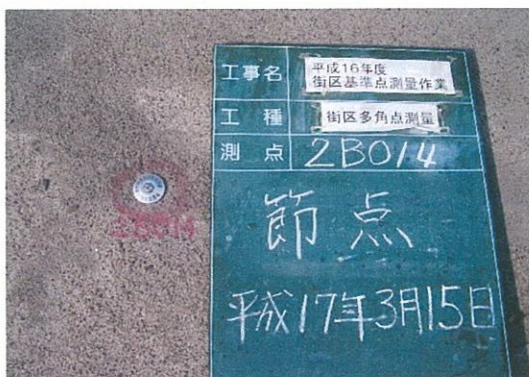 工事名
平成16年度
街区基準点測量作業
工種
街区多角点測量
測点
2B014
節点
平成17年3月15日
2B014